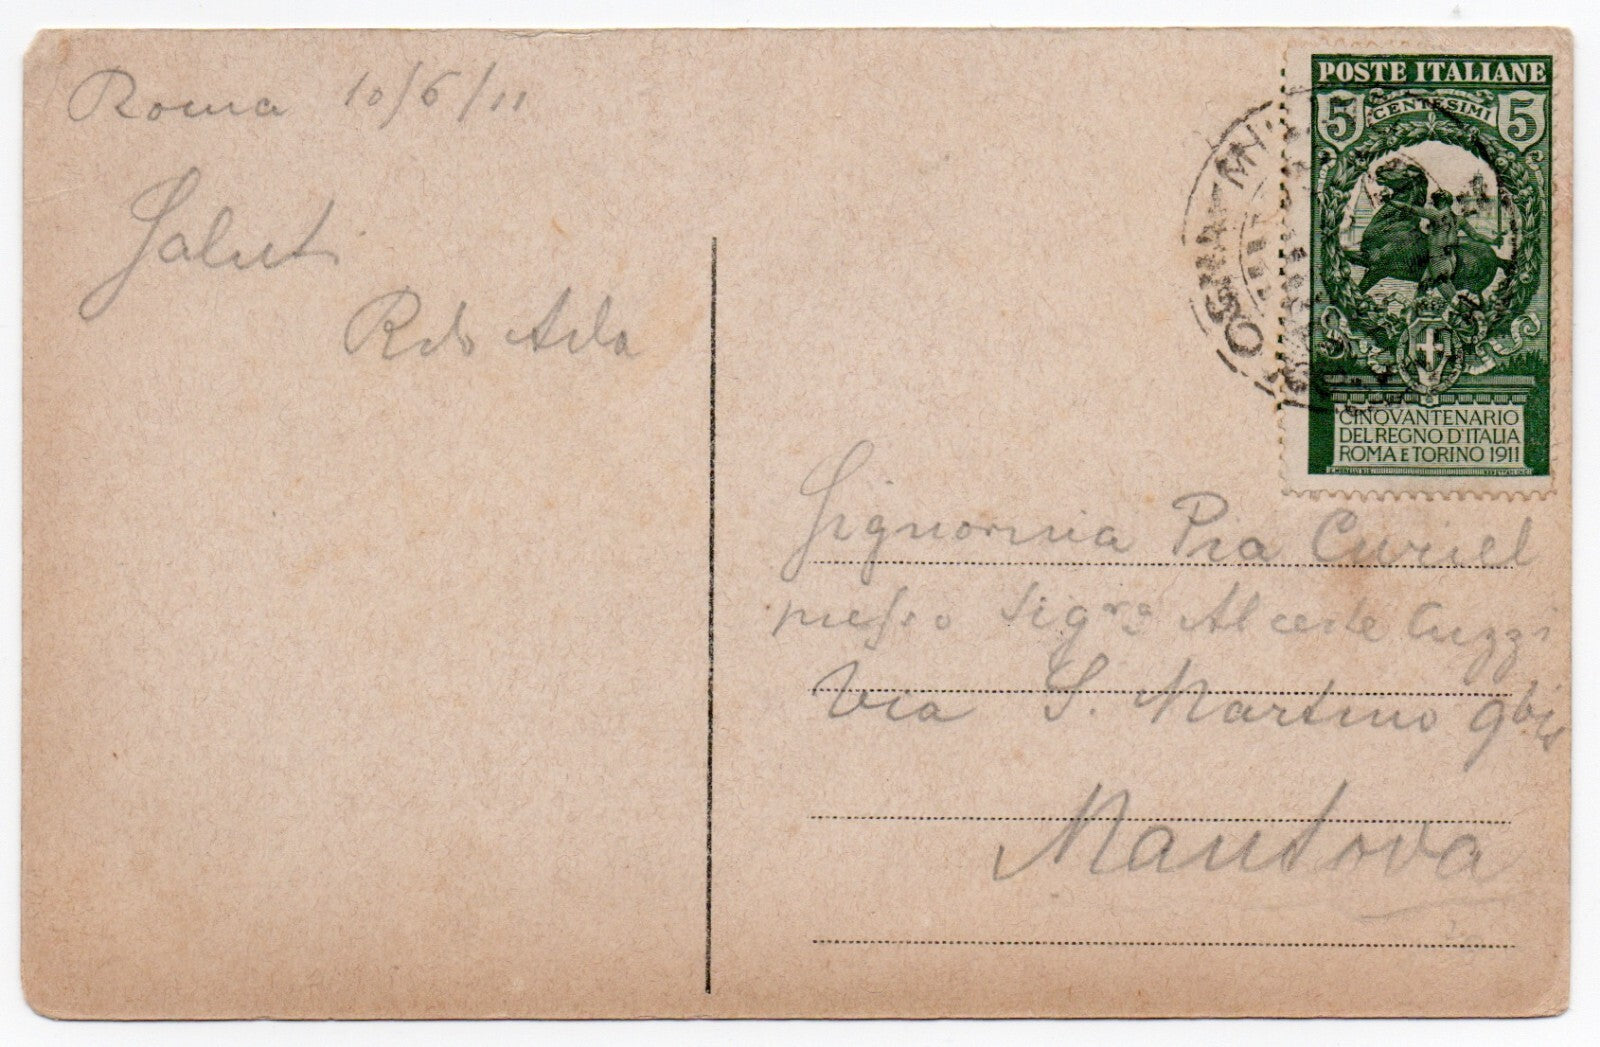 Roma 10/6/11
Saluti
Ada
POSTE ITALIANE
5 CENTESIMI 5
CINQVANTENARIO
DEL REGNO D'ITALIA
ROMA E TORINO 1911
Signorina Pia Curiel
presso Sigra Alceste Cuzzi
Via S. Martino 9bis
Mantova